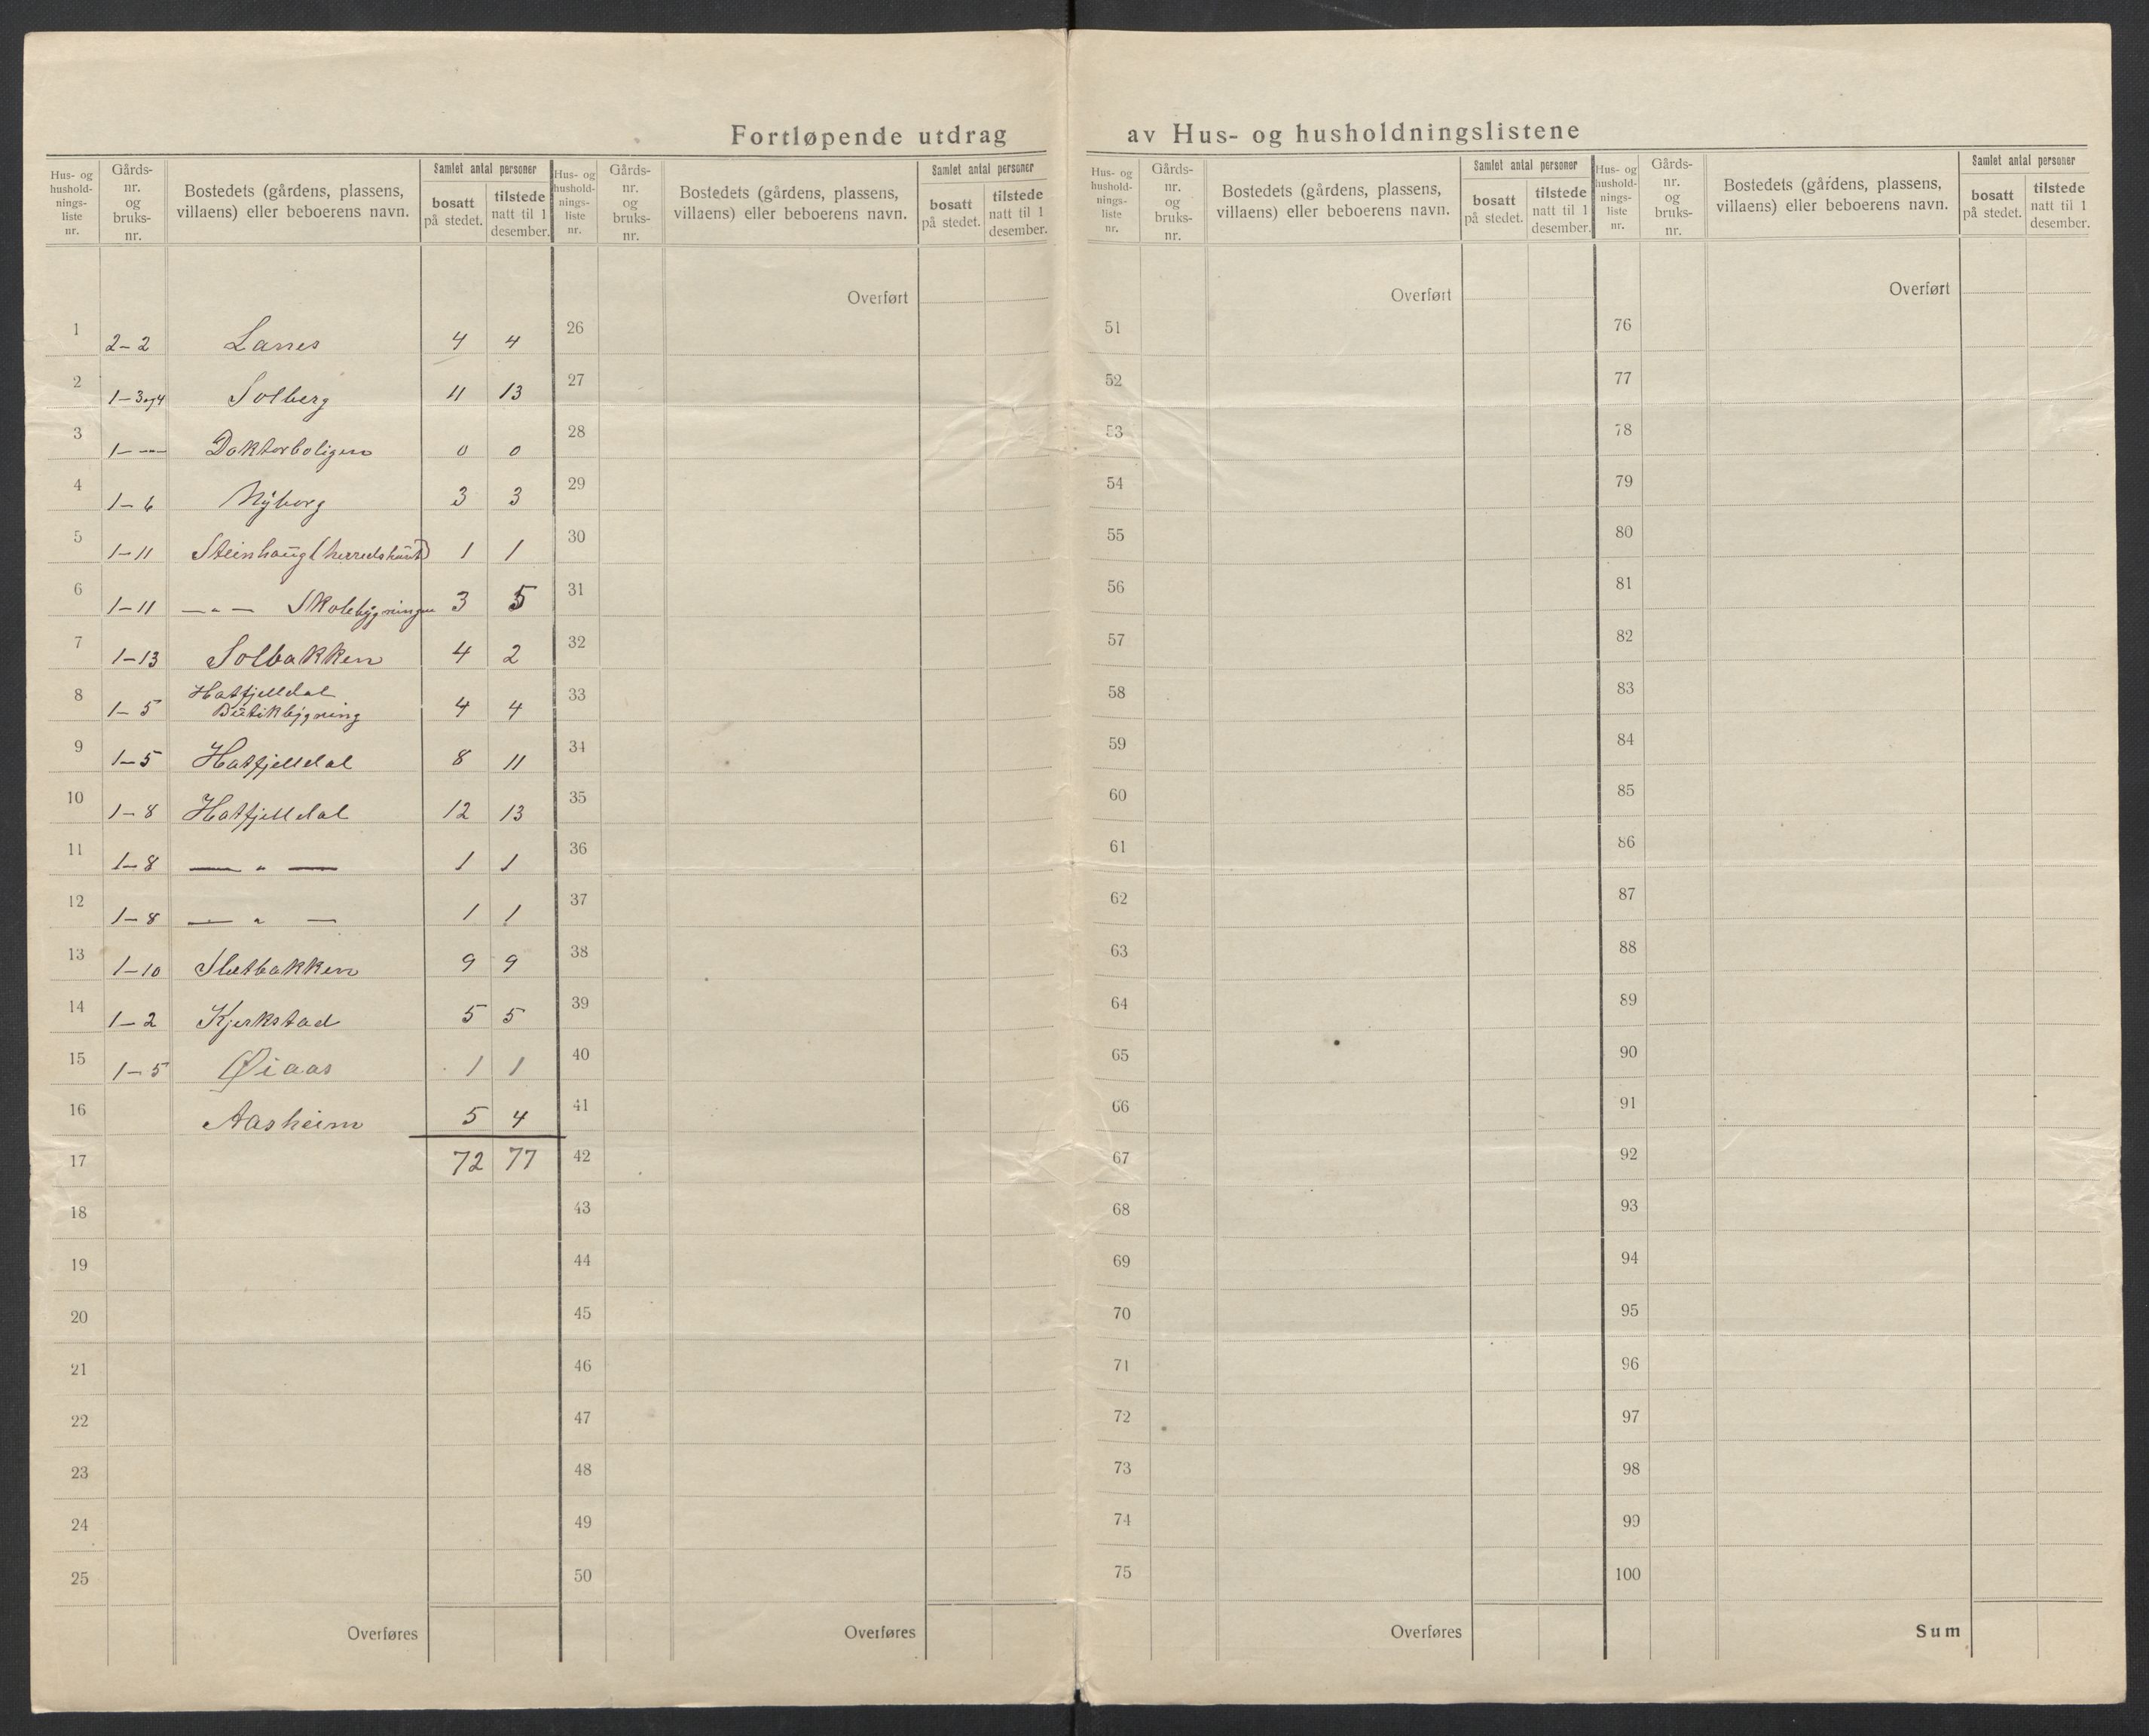 Fortløpende utdrag av Hus- og husholdningslistene
Hus- og hushold- nings- liste nr. | Gårds- nr. og bruks- nr. | Bostedets (gårdens, plassens, villaens) eller beboerens navn. | Samlet antal personer | bosatt på stedet. | tilstede natt til 1 desember.
1 2-2 Lanes 4 4
2 1-3og4 Solberg 11 13
3 1- --- Doktorboligen 0 0
4 1-6 Nyborg 3 3
5 1-11 Steinhaug (herredshuset) 1 1
6 1-11 —„— Skolebygningen 3 5
7 1-13 Solbakken 4 2
8 1-5 Hatfjelldal
Butikbygning 4 4
9 1-5 Hatfjelldal 8 11
10 1-8 Hatfjelldal 12 13
11 1-8 — „ — 1 1
12 1-8 — „ — 1 1
13 1-10 Sletbakken 9 9
14 1-2 Kjerkstad 5 5
15 1-5 Øiaas 1 1
16 Aasheim 5 4
17 72 77
18
19
20
21
22
23
24
25
Overføres
Hus- og hushold- nings- liste nr. | Gårds- nr. og bruks- nr. | Bostedets (gårdens, plassens, villaens) eller beboerens navn. | Samlet antal personer | bosatt på stedet. | tilstede natt til 1 desember.
Overført
26
27
28
29
30
31
32
33
34
35
36
37
38
39
40
41
42
43
44
45
46
47
48
49
50
Overføres
Hus- og hushold- nings- liste nr. | Gårds- nr. og bruks- nr. | Bostedets (gårdens, plassens, villaens) eller beboerens navn. | Samlet antal personer | bosatt på stedet. | tilstede natt til 1 desember.
Overført
51
52
53
54
55
56
57
58
59
60
61
62
63
64
65
66
67
68
69
70
71
72
73
74
75
Overføres
Hus- og hushold- nings- liste nr. | Gårds- nr. og bruks- nr. | Bostedets (gårdens, plassens, villaens) eller beboerens navn. | Samlet antal personer | bosatt på stedet. | tilstede natt til 1 desember.
Overført
76
77
78
79
80
81
82
83
84
85
86
87
88
89
90
91
92
93
94
95
96
97
98
99
100
Sum